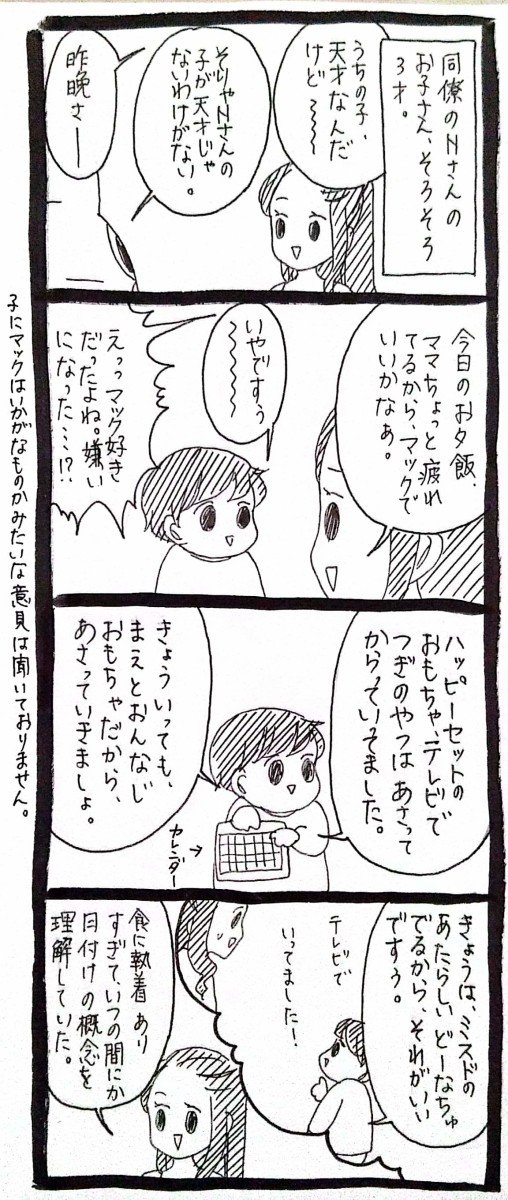 同僚のNさんの
お子さん、そろそろ
3才。
うちの子、
天才なんだ
けど〜〜〜
そりゃNさんの
子が天才じゃ
ないわけがない。
昨晩さー
今日のお夕飯、
ママちょっと疲れ
てるから、マックで
いいかなぁ。
いやですぅ
〜〜〜〜
えっっマック好き
だったよね。嫌い
になった…!?
ハッピーセットの
おもちゃ、テレビで
つぎのやつはあさって
からっていってました。
きょういっても、
まえとおんなじ
おもちゃだから、
あさっていきましょ。
カレンダー
きょうは、ミスドの
あたらしいどーなちゅ
でるから、それがいい
ですぅ。
テレビで
いってました!
食に執着あり
すぎて、いつの間にか
日付けの概念を
理解していた。
子にマックはいかがなものかみたいな意見は聞いておりません。